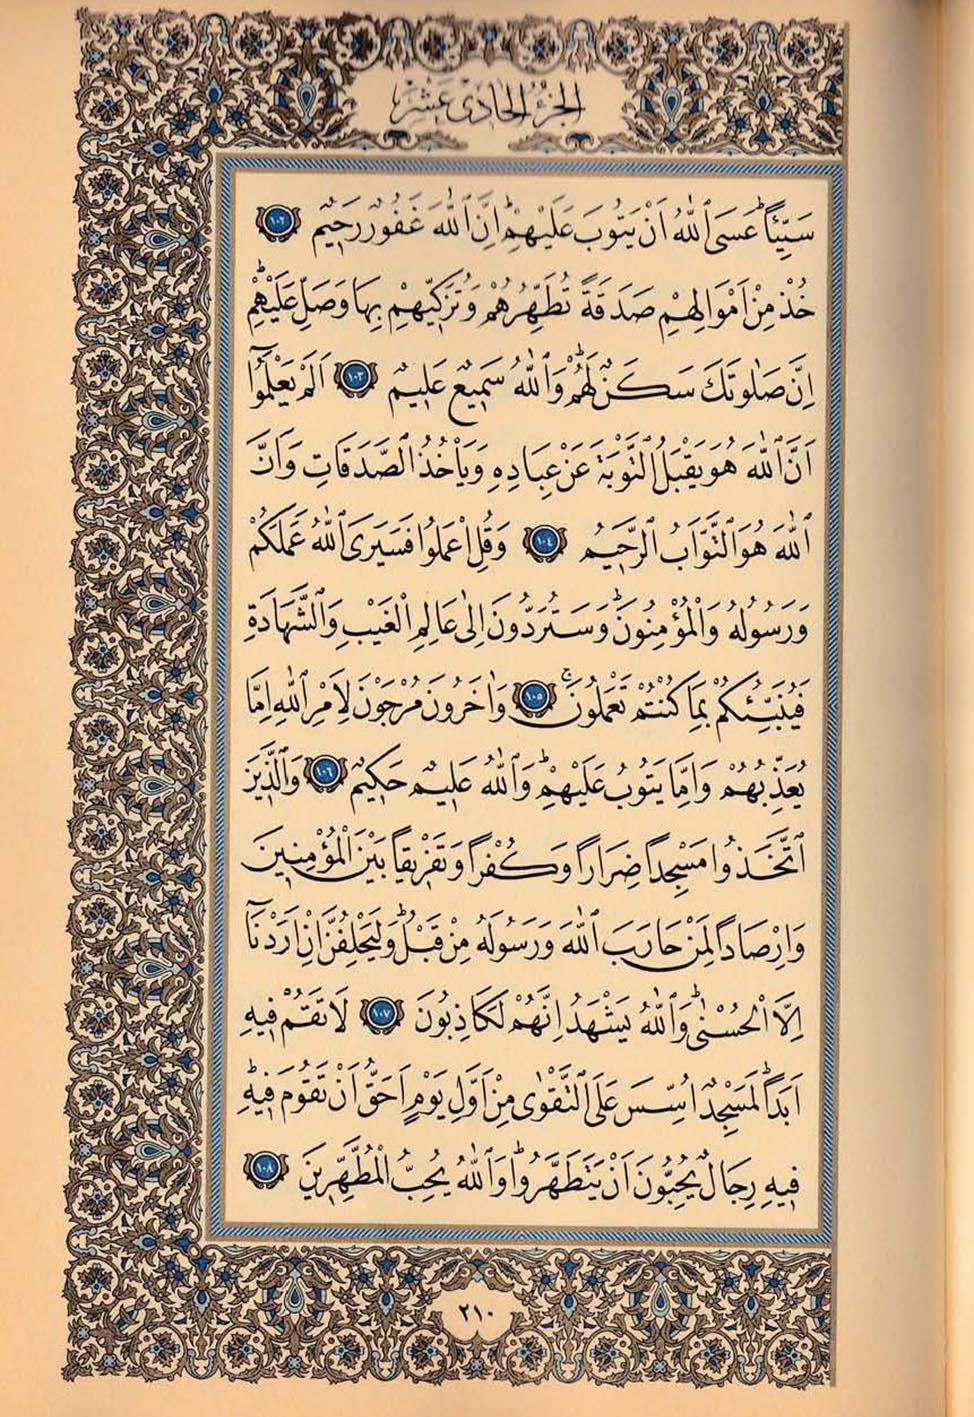 الجزء الحادى عشر
سَيِّئاًۜ عَسَى ٱللّٰهُ اَنْ يَتُوبَ عَلَيْهِمْۜ اِنَّ ٱللّٰهَ غَفُورٌ رَحٖيمٌ ١٠٢
خُذْ مِنْ اَمْوَالِهِمْ صَدَقَةً تُطَهِّرُهُمْ وَتُزَكّٖيهِمْ بِهَا وَصَلِّ عَلَيْهِمْۜ
اِنَّ صَلٰوتَكَ سَكَنٌ لَهُمْۜ وَٱللّٰهُ سَمٖيعٌ عَلٖيمٌ ١٠٣ اَلَمْ يَعْلَمُٓوا
اَنَّ ٱللّٰهَ هُوَ يَقْبَلُ ٱلتَّوْبَةَ عَنْ عِبَادِهٖ وَيَأْخُذُ ٱلصَّدَقَاتِ وَاَنَّ
ٱللّٰهَ هُوَ ٱلتَّوَّابُ ٱلرَّحٖيمُ ١٠٤ وَقُلِ اعْمَلُوا فَسَيَرَى ٱللّٰهُ عَمَلَكُمْ
وَرَسُولُهُ وَالْمُؤْمِنُونَۜ وَسَتُرَدُّونَ اِلٰى عَالِمِ الْغَيْبِ وَٱلشَّهَادَةِ
فَيُنَبِّئُكُمْ بِمَا كُنْتُمْ تَعْمَلُونَۚ ١٠٥ وَاٰخَرُونَ مُرْجَوْنَ لِاَمْرِ ٱللّٰهِ اِمَّا
يُعَذِّبُهُمْ وَاِمَّا يَتُوبُ عَلَيْهِمْۜ وَٱللّٰهُ عَلٖيمٌ حَكٖيمٌ ١٠٦ وَٱلَّذٖينَ
ٱتَّخَذُوا مَسْجِداً ضِرَاراً وَكُفْراً وَتَفْرٖيقاً بَيْنَ الْمُؤْمِنٖينَ
وَاِرْصَاداً لِمَنْ حَارَبَ ٱللّٰهَ وَرَسُولَهُ مِنْ قَبْلُۜ وَلَيَحْلِفُنَّ اِنْ اَرَدْنَٓا
اِلَّا الْحُسْنٰىۜ وَٱللّٰهُ يَشْهَدُ اِنَّهُمْ لَكَاذِبُونَ ١٠٧ لَا تَقُمْ فٖيهِ
اَبَداًۜ لَمَسْجِدٌ اُسِّسَ عَلَى ٱلتَّقْوٰى مِنْ اَوَّلِ يَوْمٍ اَحَقُّ اَنْ تَقُومَ فٖيهِۜ
فٖيهِ رِجَالٌ يُحِبُّونَ اَنْ يَتَطَهَّرُواۜ وَٱللّٰهُ يُحِبُّ الْمُطَّهِّرٖينَ ١٠٨
٢١٠